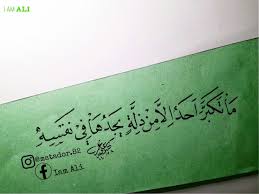 I AM ALI
مَا تَكَبَّرَ أَحَدٌ إِلَّا مِنْ ذِلَّةٍ يَجِدُهَا فِي نَفْسِهِ
@matador.82
Iam Ali